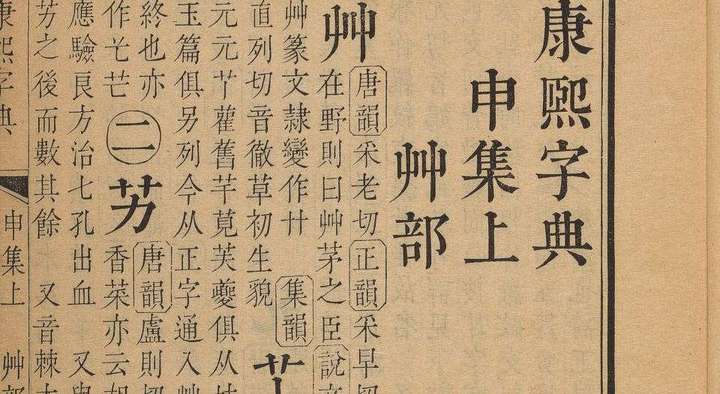 康熙字典
申集上
艸部
艸
唐韻采老切正韻采早切
在野則曰艸茅之臣說文
艸篆文隸變作卄 集韻
直列切音徹草初生貌
元元艹雚舊芉莧芙夔俱从
玉篇俱另列今从正字通入艸
終也亦
作芒
二
艻
唐韻盧則切
香菜亦云胡
應驗良方治七孔出血 又與
芳之後而數其餘 又音棘
康熙字典 申集上 艸部